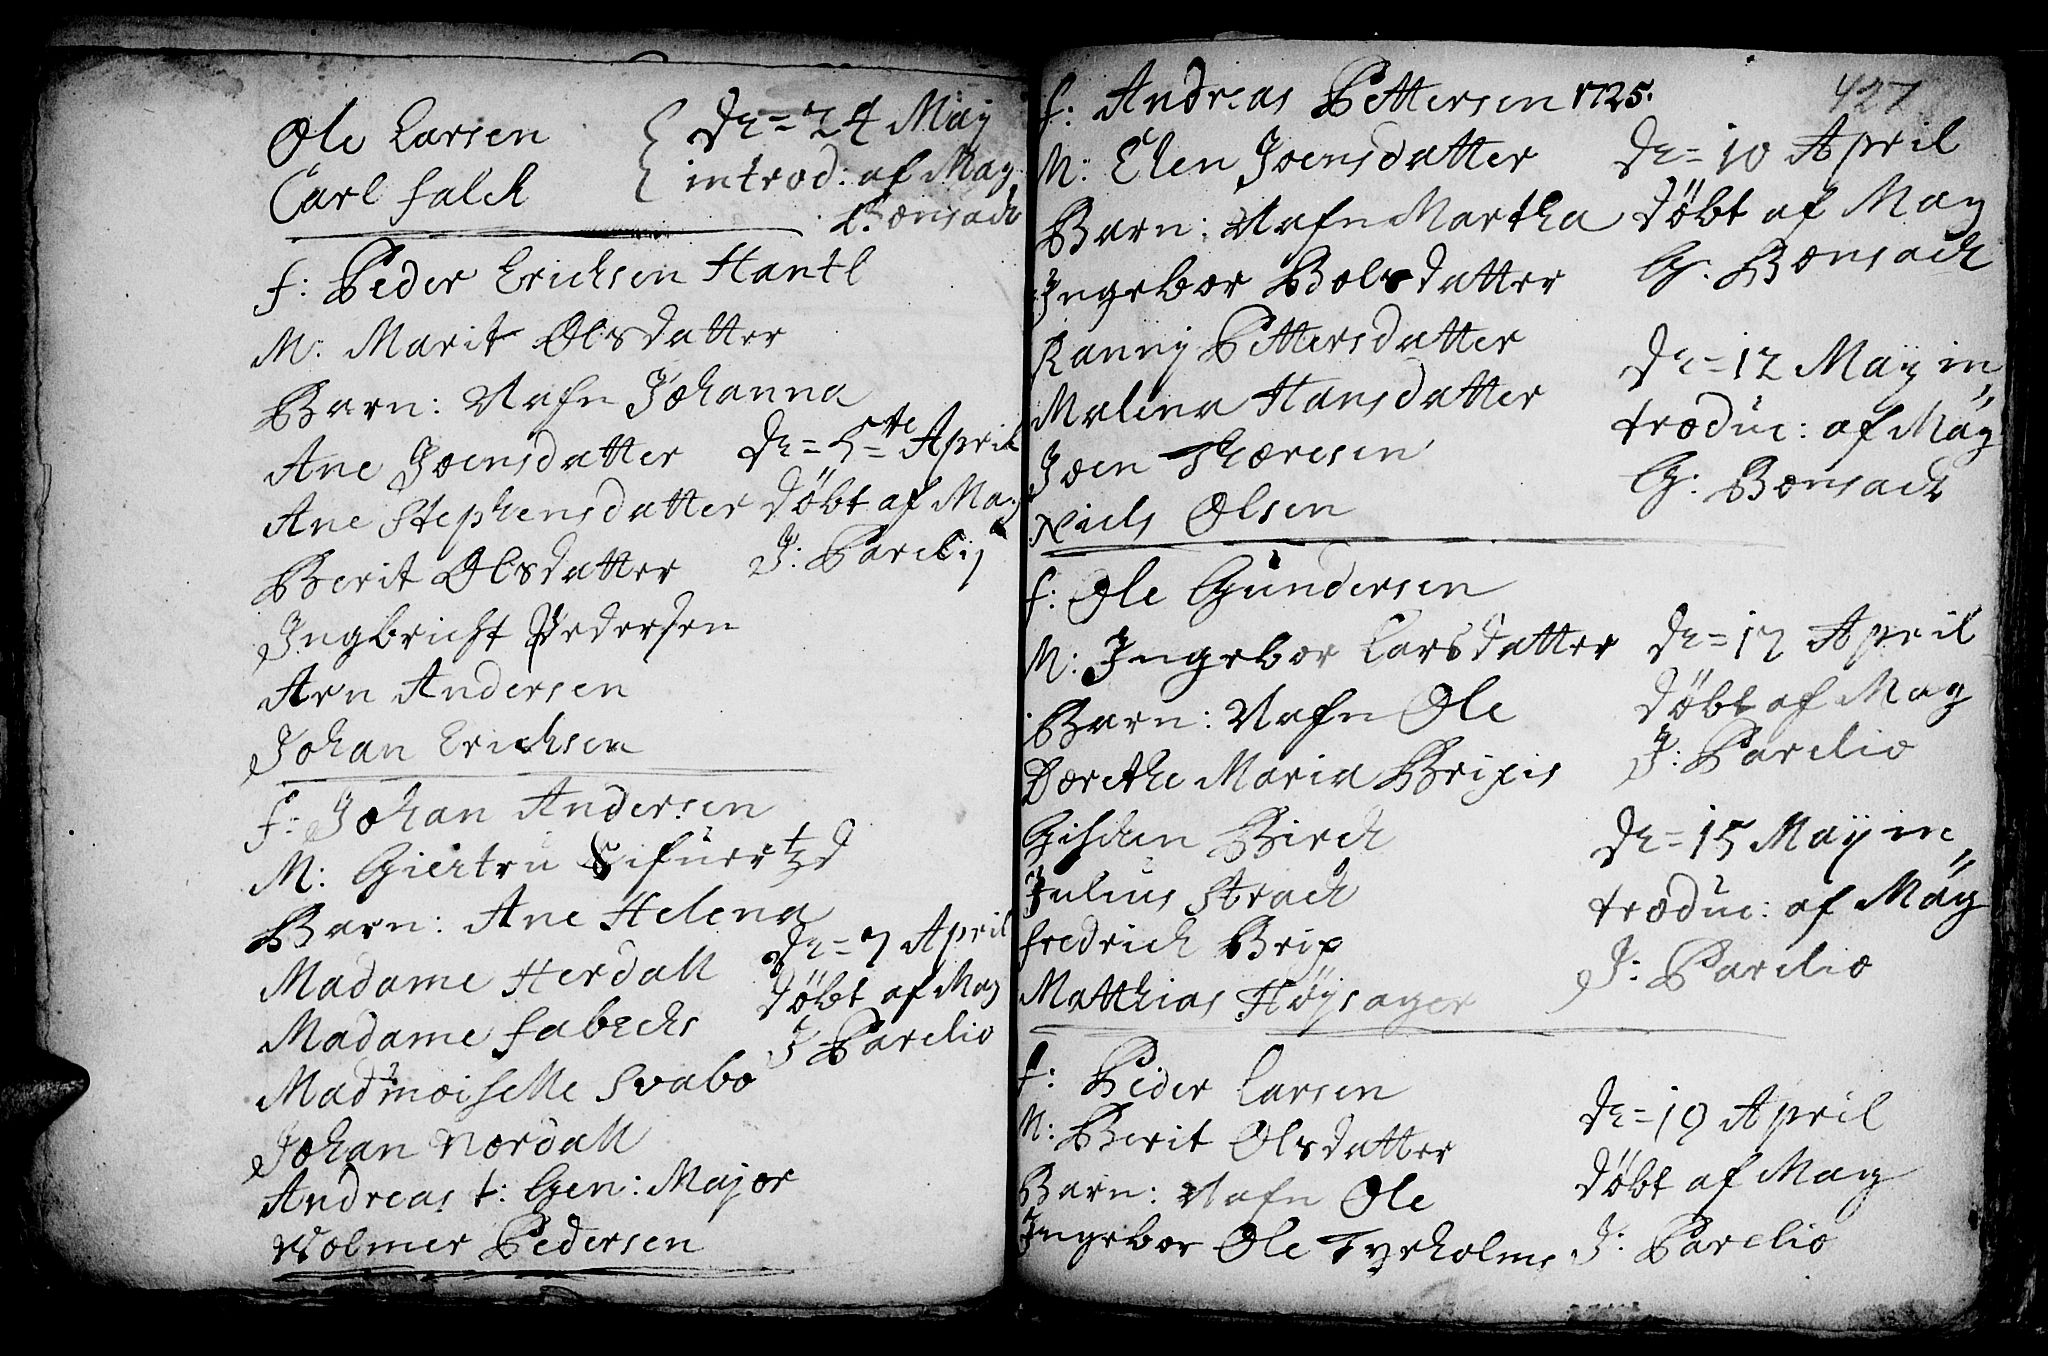 Ole Larsen
Carl Falch
De = 24 Maÿ
introd: af Mag,
C: Bønsach
F: Peder Erichsen Hantl
M: Marit Olsdatter
Barn: Nafn Johanna
Ane Joensdatter
Ane Stephensdatter
Berit Olsdatter
Ingbricht Pedersen
Arn Andersen
Johan Erichsen
De = 5te April
døbt af Mag
J: Parelij
F: Johan Andersen
M: Giertru Sifuertzd
Barn: Ane Helena
Madame Herdall
Madame Fabechs
Madmoiselle Svabo
Johan Nordall
Andreas t: Gen: Major
Wolmer Pedersen
De = 7 April
døbt af Mag
J: Parelio
427
F: Andreas Pettersen 1725.
M: Elen Joensdatter
Barn: Nafn Martha
Ingebor Bolsdatter
Ranny Pettersdatter
Malena Hansdatter
Joen Thoresen
Niels Olsen
De = 10 April
døbt af Mag
G: Bønsach
De = 12 Maÿ in,,
troduc: af Mag
G: Bønsach
F: Ole Gundersen
M: Ingebor Larsdatter
Barn: Nafn Ole
Dorethe Maria Bripis
Gisken Birch
Julius Strach
Fredrich Brip
Matthias Høysager
De = 17 April
døbt af Mag
J: Parelio
De = 15 Maÿ in,,
troduc: af Mag
J: Parelio
F: Peder Larsen
M: Berit Olsdatter
Barn: Nafn Ole
Ingebor Ole Tyrholms
De = 19 April
døbt af Mag
J: Parelio